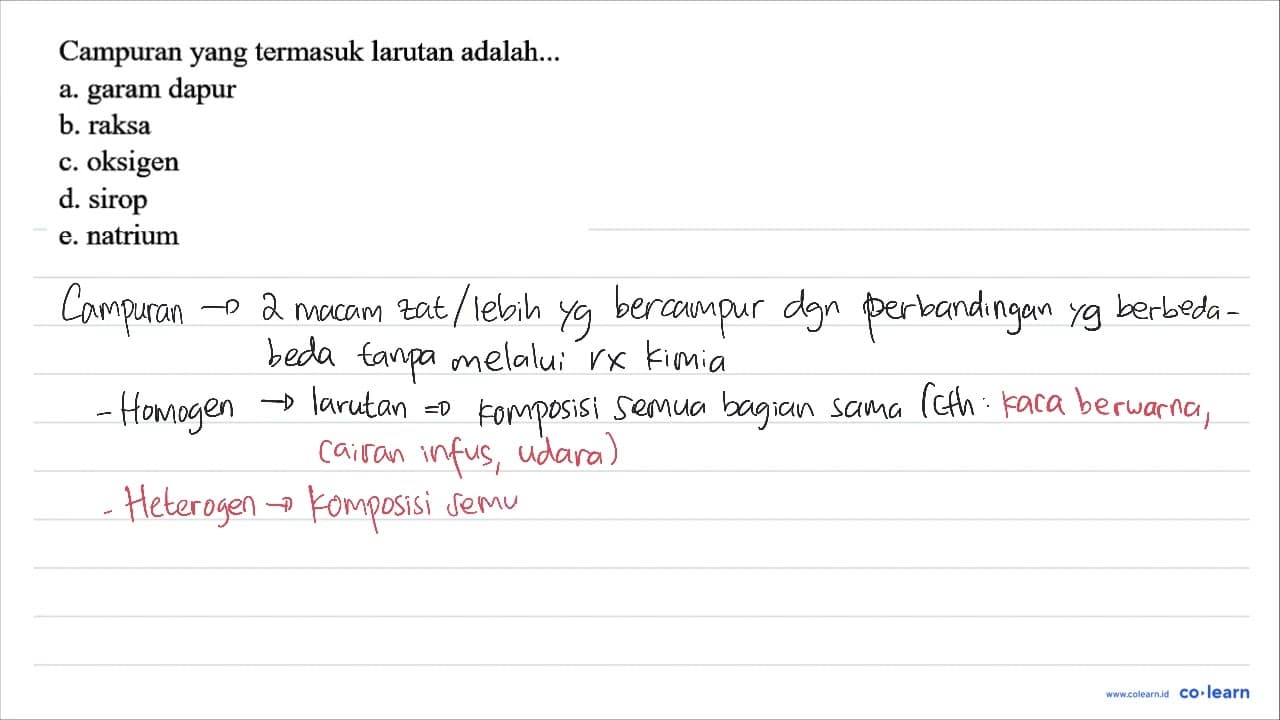 Campuran yang termasuk larutan adalah...
a. garam dapur
b. raksa
c. oksigen
d. sirop
e. natrium
Campuran → 2 macam zat/lebih yg bercampur dgn perbandingan yg berbeda-
beda tanpa melalui rx kimia
- Homogen → larutan ⇒ komposisi semua bagian sama (cth: kaca berwarna,
cairan infus, udara)
- Heterogen → komposisi semu
www.colearn.id co·learn